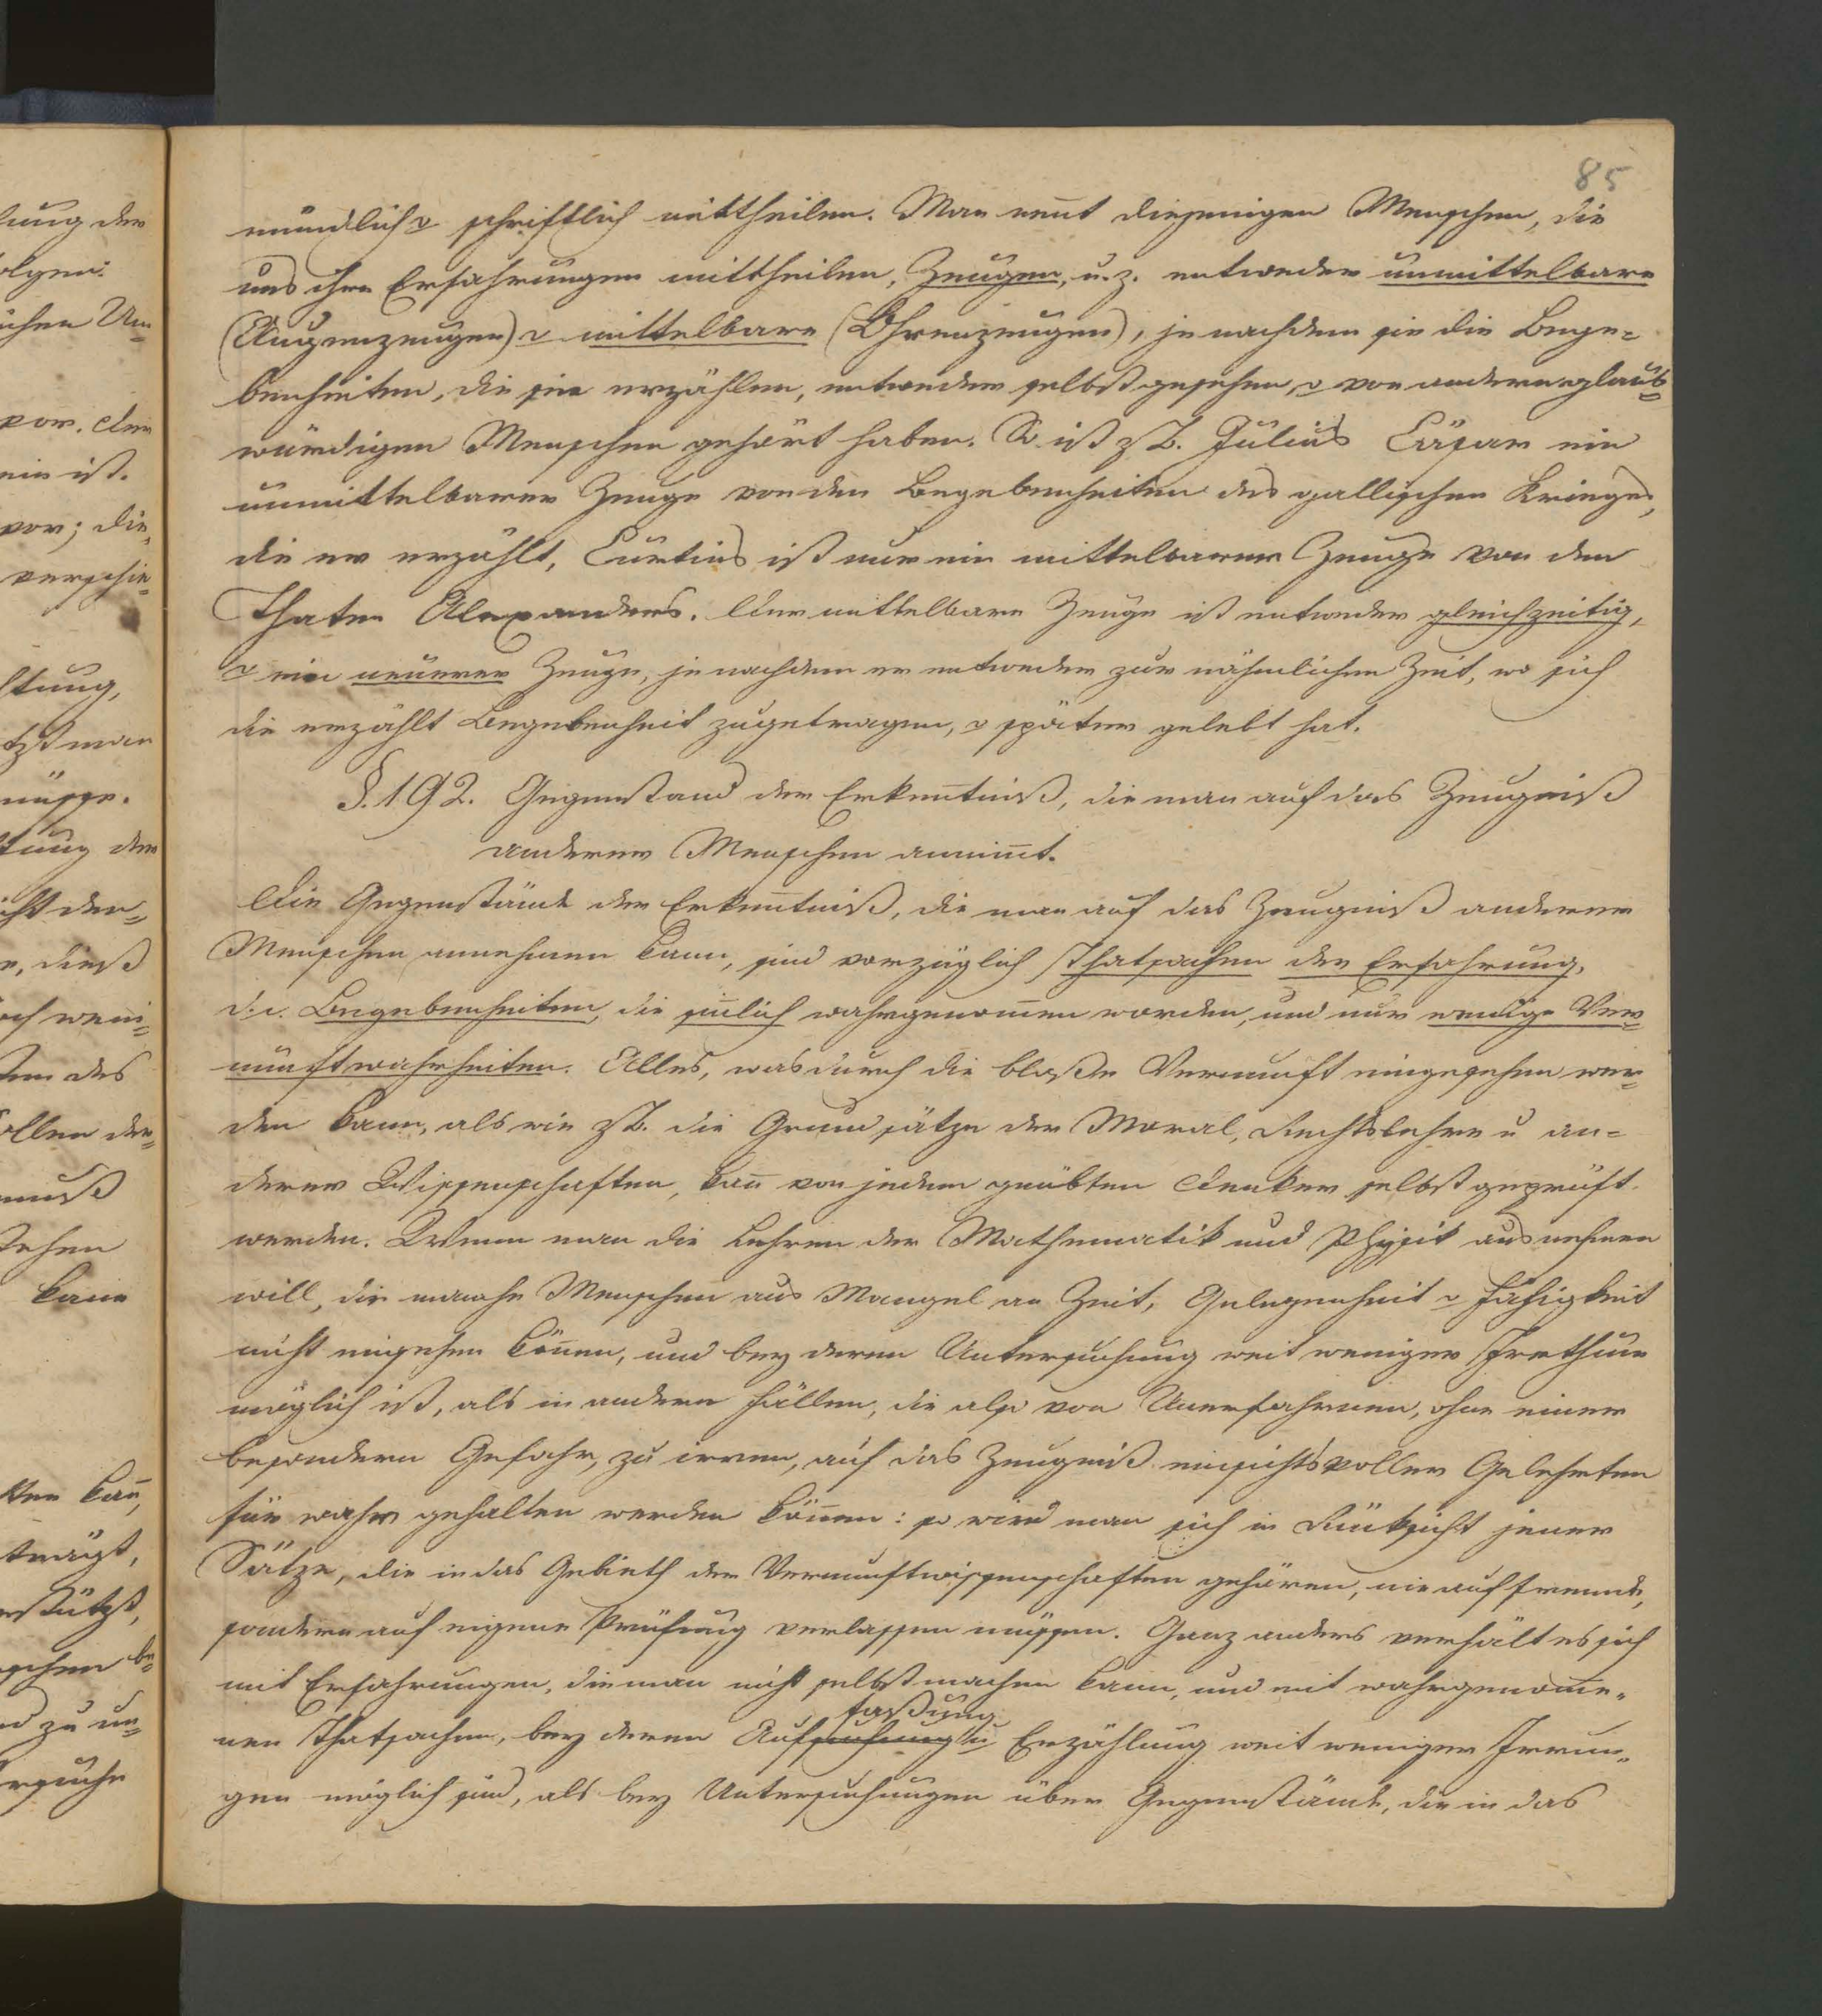 85
mündlich o schriftlich mittheilen. Man nen̄t diejenigen Menschen, die
uns ihre Erfahrungen mittheilen, Zeugen, u. z. entweder unmittelbare
(Augenzeugen) o mittelbare (Ohrenzeugen), je nachdem sie die Bege=
benheiten, die sie erzählen, entweder selbst gesehen, o von andern glaub=
würdigen Menschen gehört haben. So ist z B. Julius Cäsar ein
unmittelbarer Zeuge von den Begebenheiten des gallischen Krieges,
die er erzählt, Curtius ist nur ein mittelbarer Zeuge von den
Thaten Alexanders. Der mittelbare Zeuge ist entweder gleichzeitig,
o ein neuerer Zeuge, je nachdem er entweder zur nähmlichen Zeit, wo sich
die erzählt Begebenheit zugetragen, o später gelebt hat.
§. 192. Gegenstand der Erken̄tniß, die man auf das Zeugniß
anderer Menschen annim̄t.
Die Gegenstände der Erken̄tniß, die man auf das Zeugniß anderer
Menschen annehmen kann, sind vorzüglich Thatsachen der Erfahrung,
d. i. Begebenheiten, die sin̄lich wahrgenom̄en worden, und nur wenige Ver=
nunftwahrheiten. Alles, was durch die bloße Vernunft eingesehen wer=
den kann, als wie z B. die Grundsätze der Moral, Rechtslehre u an=
derer Wissenschaften, kan̄ von jedem geübten Denker selbst geprüft
werden. Wenn man die Lehren der Mathematik und Physik ausnehmen
will, die manche Menschen aus Mangel an Zeit, Gelegenheit o Fähigkeit
nicht einsehen kön̄en, und bey deren Untersuchung weit weniger Irrthum
möglich ist, als in andern Fällen, die also von Unerfahrnen, ohne einer
besondern Gefahr, zu irren, auf das Zeugniß einsichtsvoller Gelehrten
für wahr gehalten werden kön̄en: so wird man sich in Rüksicht jener
Sätze, die in das Gebieth der Vernunftwissenschaften gehören, nie auf fremde,
sondern auf eigene Prüfung verlassen müssen. Ganz anders verhält es sich
mit Erfahrungen, die man nicht selbst machen kann, und mit wahrgenom̄e=
faßung
nen Thatsachen, bey deren Auf u Erzählung weit weniger Irrun=
gen möglich sind, als bey Untersuchungen über Gegenstände, die in das